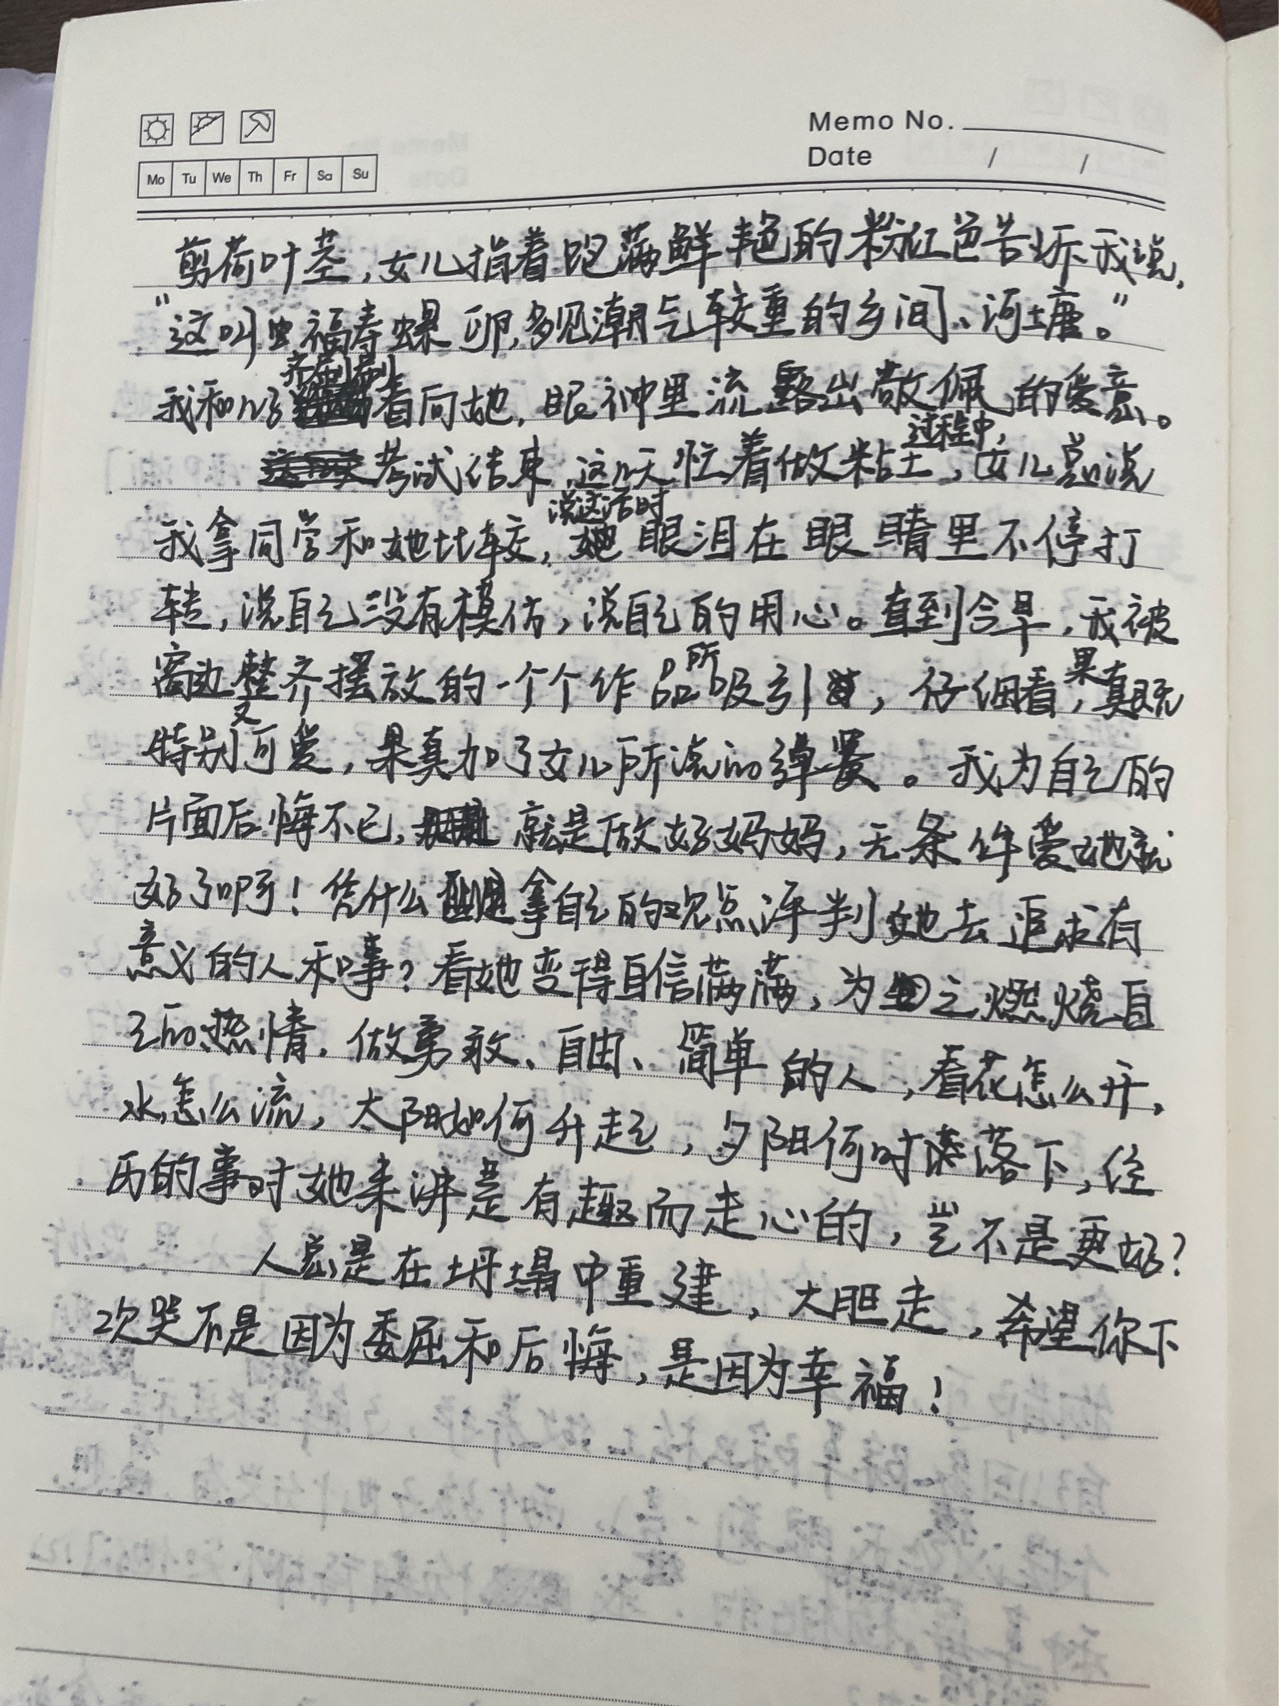 Memo No.
Date / /
Mo Tu We Th Fr Sa Su
剪荷叶茎,女儿指着饱满鲜艳的粉红色告诉我说,
"这叫虫福寿螺卵,多见潮气较重的乡间、河塘。"
我和 齐刷刷看向她,眼神里流露出敬佩的爱意。
考试结束,这几天忙着做粘土过程中,女儿总说
我拿同学和她比较,说这话时眼泪在眼睛里不停打
转,说自己没有模仿,说自己的用心。直到今早,我被
窗边整齐摆放的一个个作品所吸引,仔细看,果真既
特别又可爱,果真加了女儿所说的弹簧。我为自己的
片面后悔不已,就是做好妈妈,无条件爱她就
好了呀!凭什么拿自己的观点评判她去追求有
意义的人和事?看她变得自信满满,为之燃烧自
己的热情,做勇敢、自由、简单的人,看花怎么开,
水怎么流,太阳如何升起,夕阳何时落下,经
历的事对她来讲是有趣而走心的,岂不是更好?
人总是在坍塌中重建,大胆走,希望你下
次哭不是因为委屈和后悔,是因为幸福!